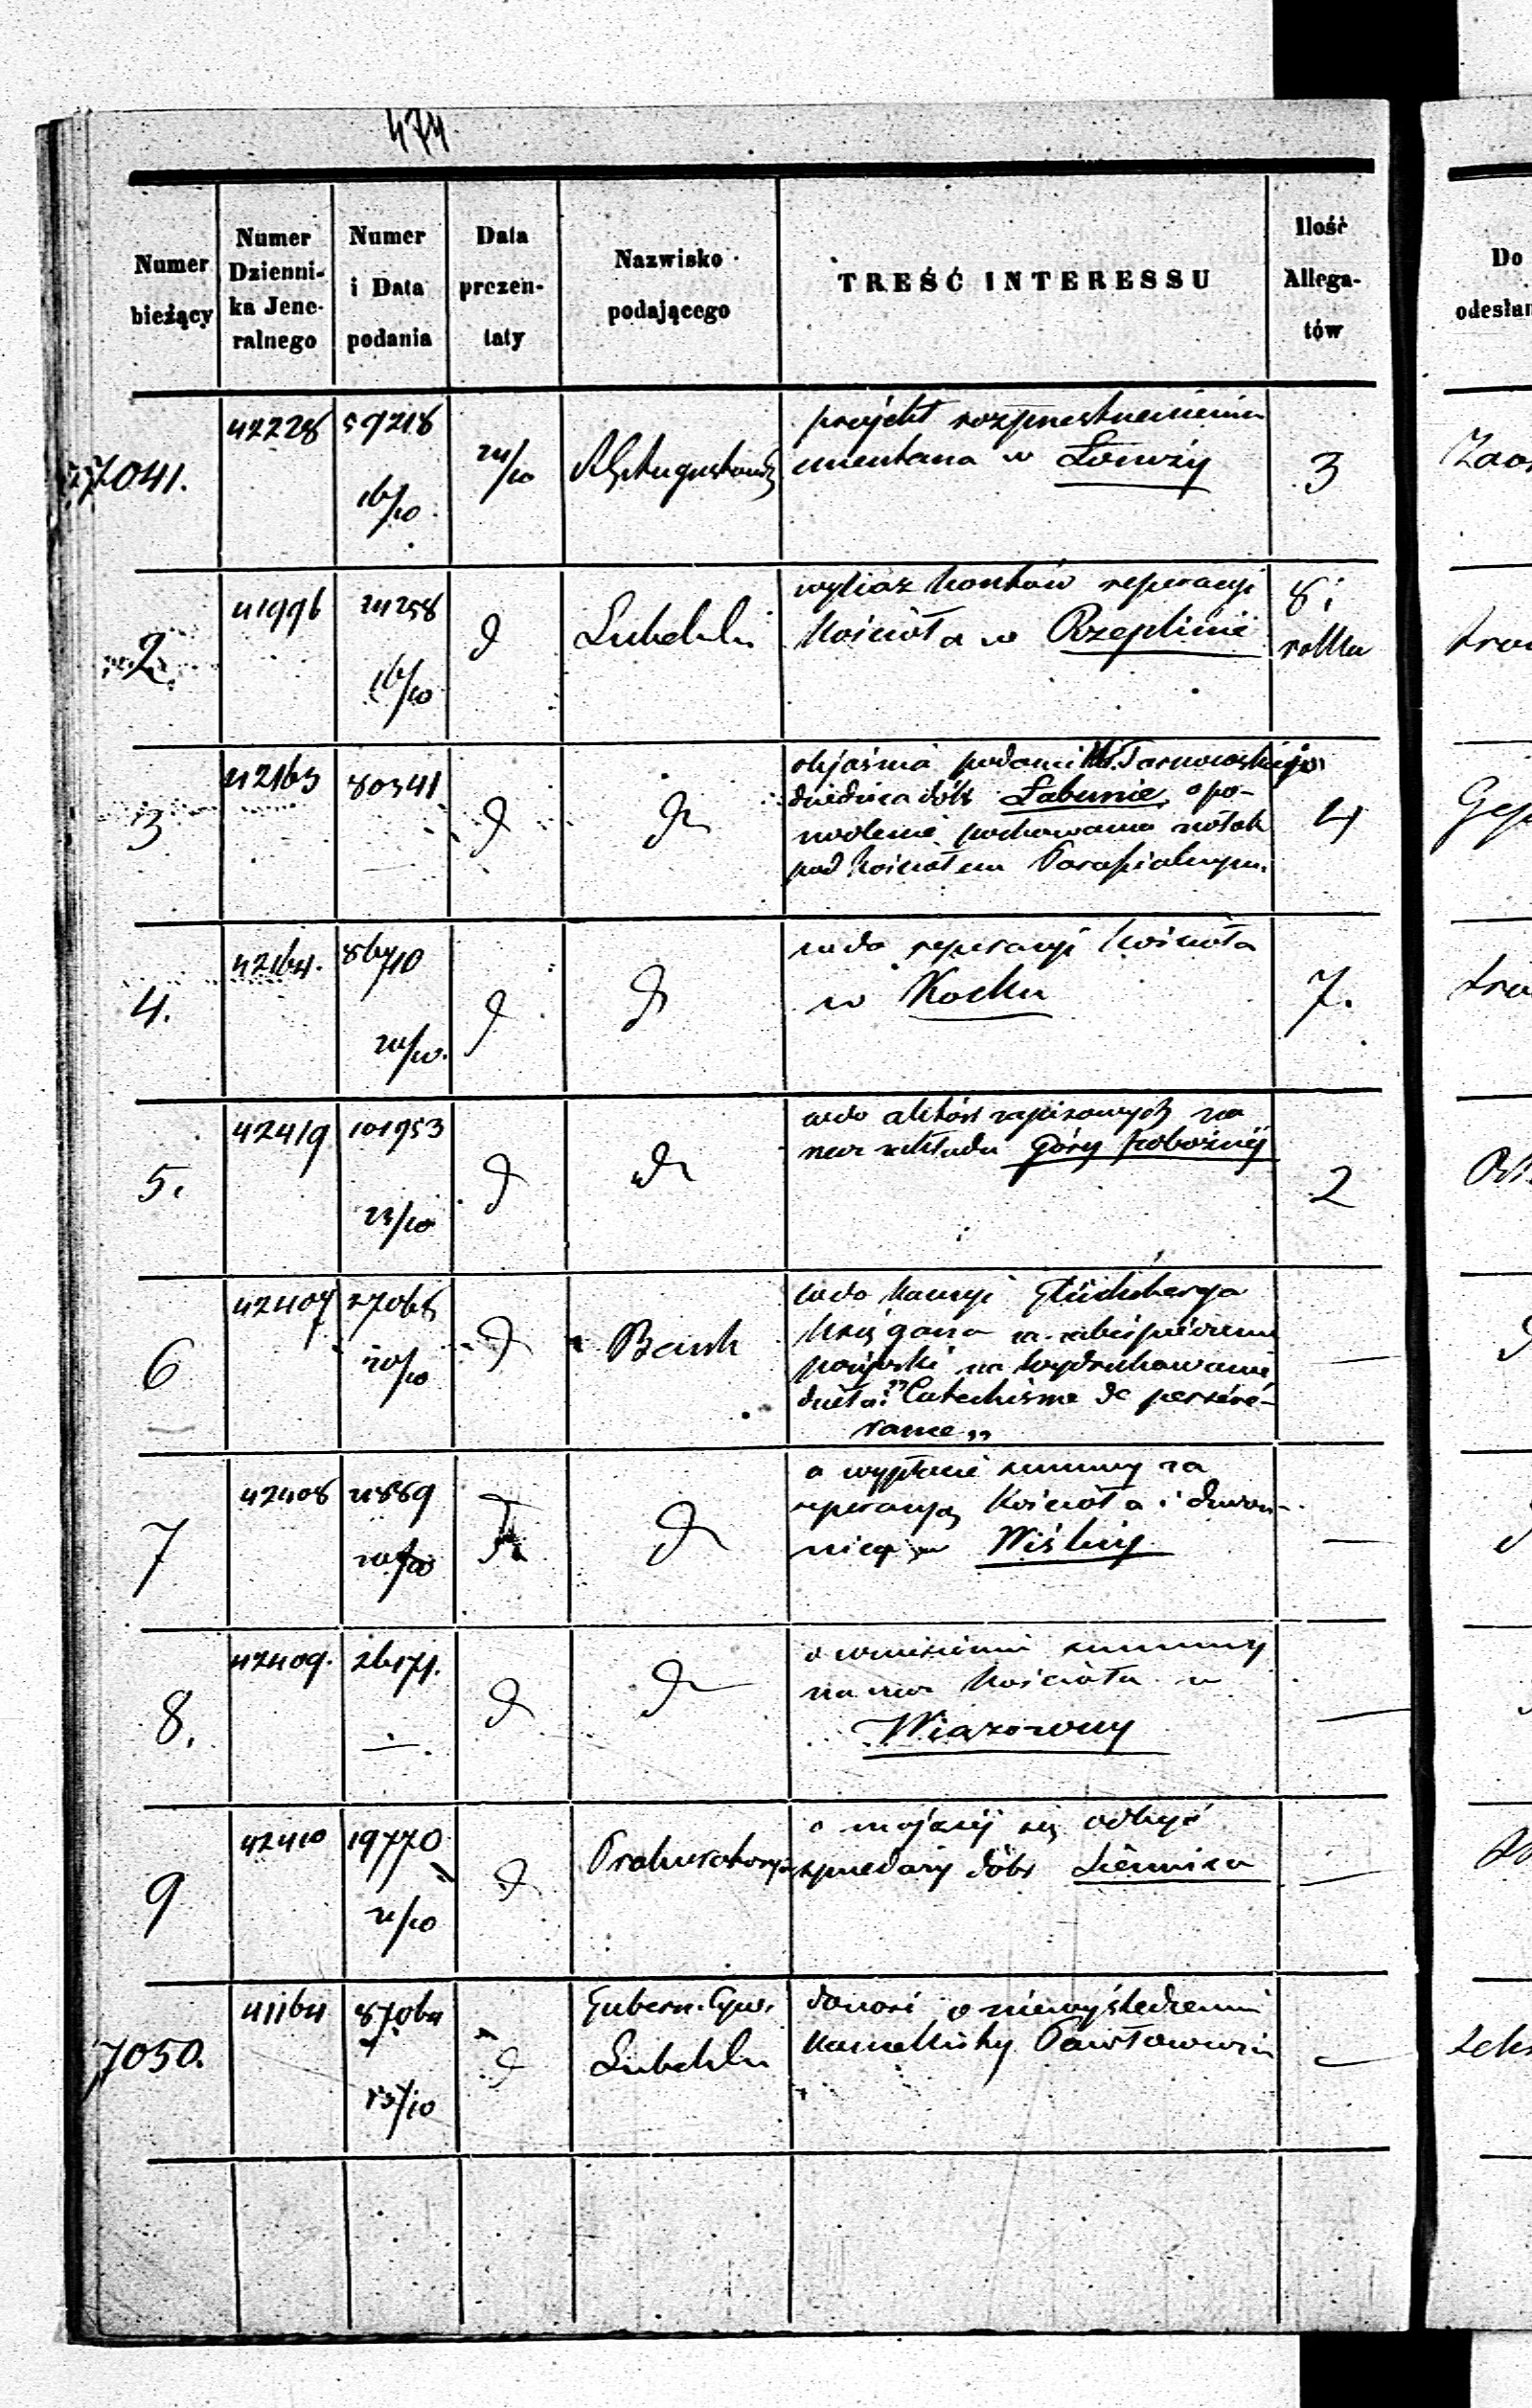 474
Numer bieżący
Numer Dzienni- ka Jene- ralnego
Numer i Data podania
Data prezen- taty
Nazwisko podającego
TREŚĆ INTERESSU
Ilość Allega- tów
Do
odesłan
7041.
42228
59218
16/10
24/10
projekt rozprzestrzenienia
cmentarza w Łomży
3
2
41996
24258
16/10
d
Lubelski
wykaz kosztów reperacyi
Kościoła w Rzeplinie
8 i
rolka
3
42163
80341
d
d
objaśnia podanie Tarnowskiego
dziedzica dóbr Łabunie, o po-
zwolenie pochowania zwłok
pod Kościołem Parafialnym.
4
4.
42164.
86710
20/10.
d
d
wdo reperacyi Kościoła
w Kocku
7.
5.
42419
101953
23/10
d
d
wdo aktów zapisowych na
rzecz zakładu Góry
2
6
42407
27065
20/10
d
Bank
wdo kaucyi Glücksberga
Księgarza na zabezpieczenie
pożyczki na wydrukowanie
dzieła: "Catechisme de persévé-
rance„
—
7
42408
21889
d
o wypłacie summy za
reperacyą Kościoła i dzwon-
nicy w Wiślicy
—
8.
42409.
26171.
—.
d
d
o wniesieniu summy
na rzecz Kościoła w
Wiązowny
—
9
42410
19770
21/10
d
Prokuratorya
o mającej się odbyć
sprzedaży dóbr Siennica
—
7050.
41164
87064
15/10
d
Gubern. Cyw.
Lubelski
donosi o niewyśledzeniu
Pawłowicza
—